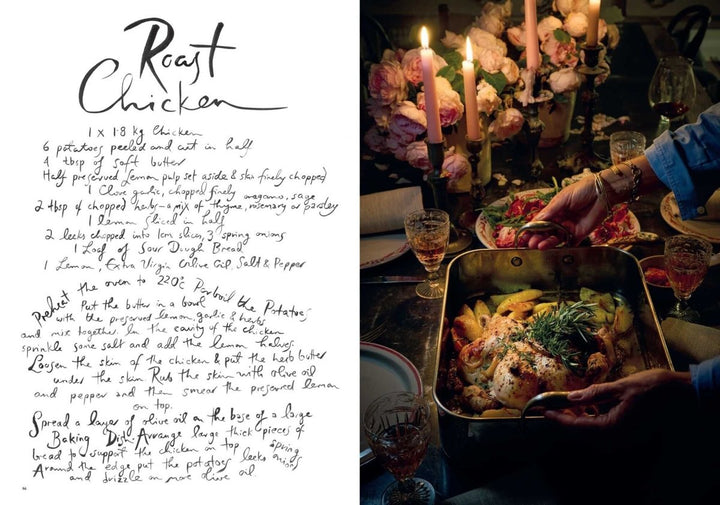 Roast
Chicken
1 x 1.8 kg Chicken
6 potatoes peeled and cut in half
4 tbsp of soft butter
Half preserved Lemon pulp set aside & skin finely chopped
1 Clove garlic, chopped finely
2 tbsp of chopped herbs – a mix of thyme, oregano, sage rosemary or parsley
1 lemon sliced in half
2 leeks chopped into 1cm slices, 3 spring onions
1 Loaf of Sour Dough Bread
1 Lemon, Extra Virgin Olive Oil, Salt & Pepper
Preheat the oven to 220°c Parboil the Potatoes
Put the butter in a bowl
with the preserved lemon, garlic & herbs
and mix together. In the cavity of the chicken
sprinkle some salt and add the lemon halves.
Loosen the skin of the chicken & put the herb butter
under the skin. Rub the skin with olive oil
and pepper and then smear the preserved lemon
on top.
Spread a layer of olive oil on the base of a large
Baking Dish. Arrange large thick pieces of
bread to support the chicken on top
Around the edge put the potatoes leeks spring onions
and drizzle on more olive oil